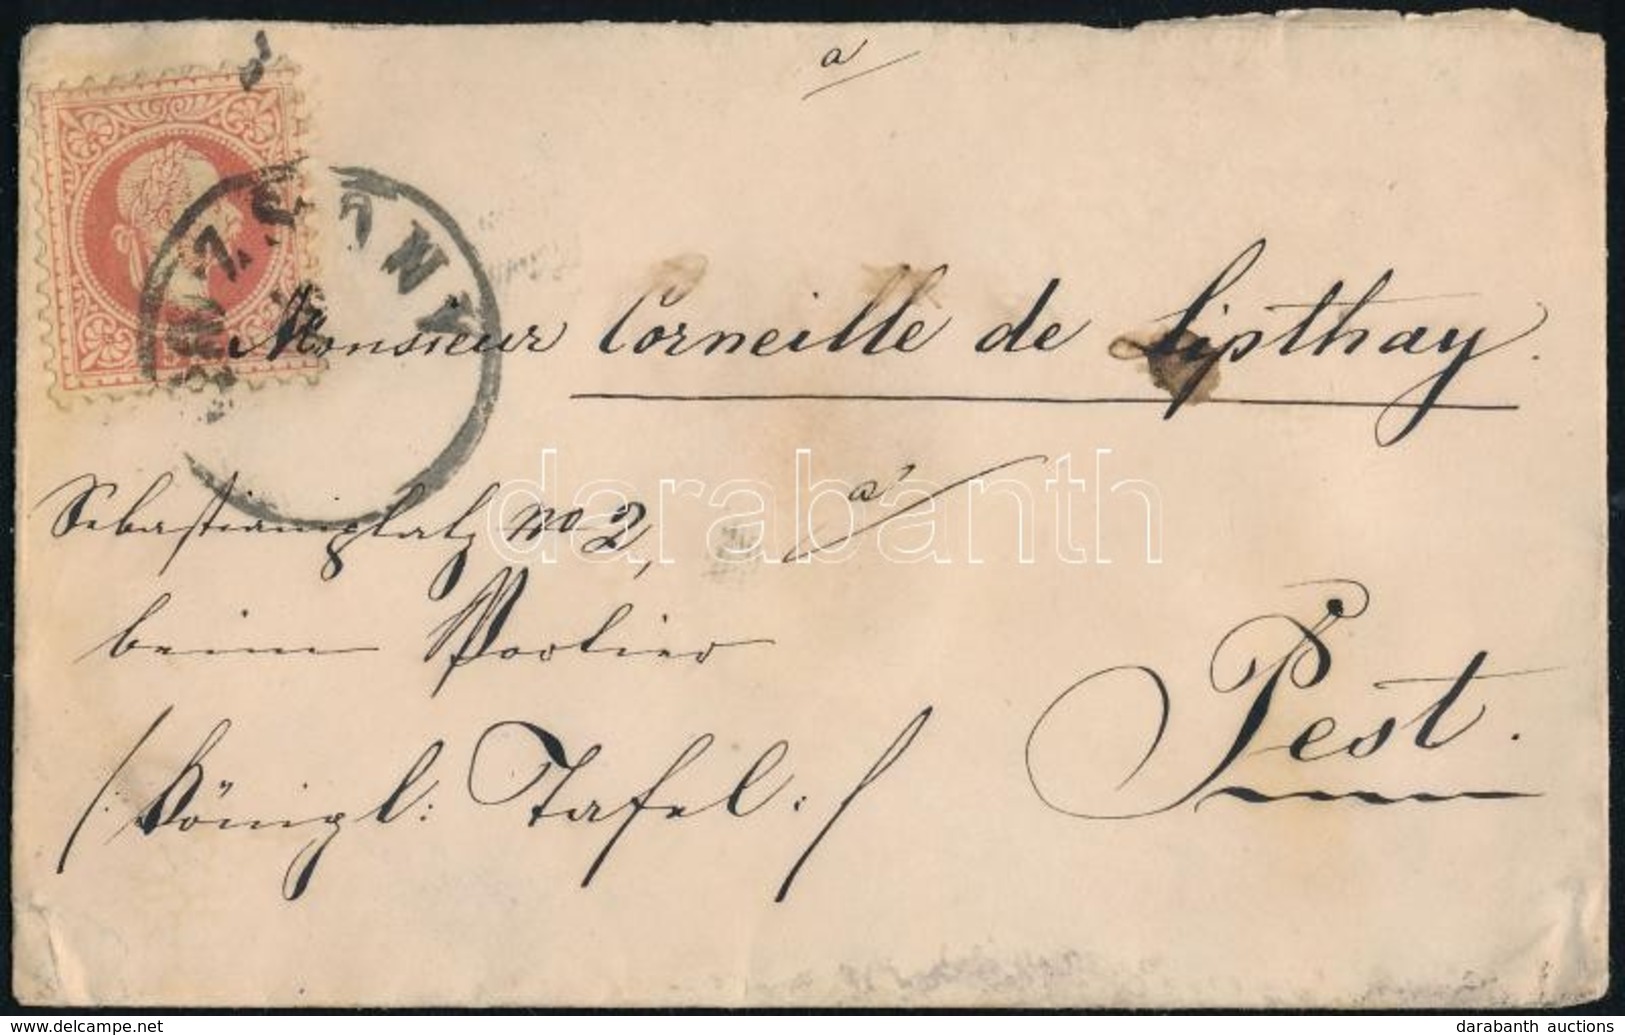 a
Monsieur Corneille de Lipthay.
Sebastianiplatz No 2,
a
beim Portier
/: Königl: Tafel :/
Pest.
darabanth
delcampe.net
darabanth auctions